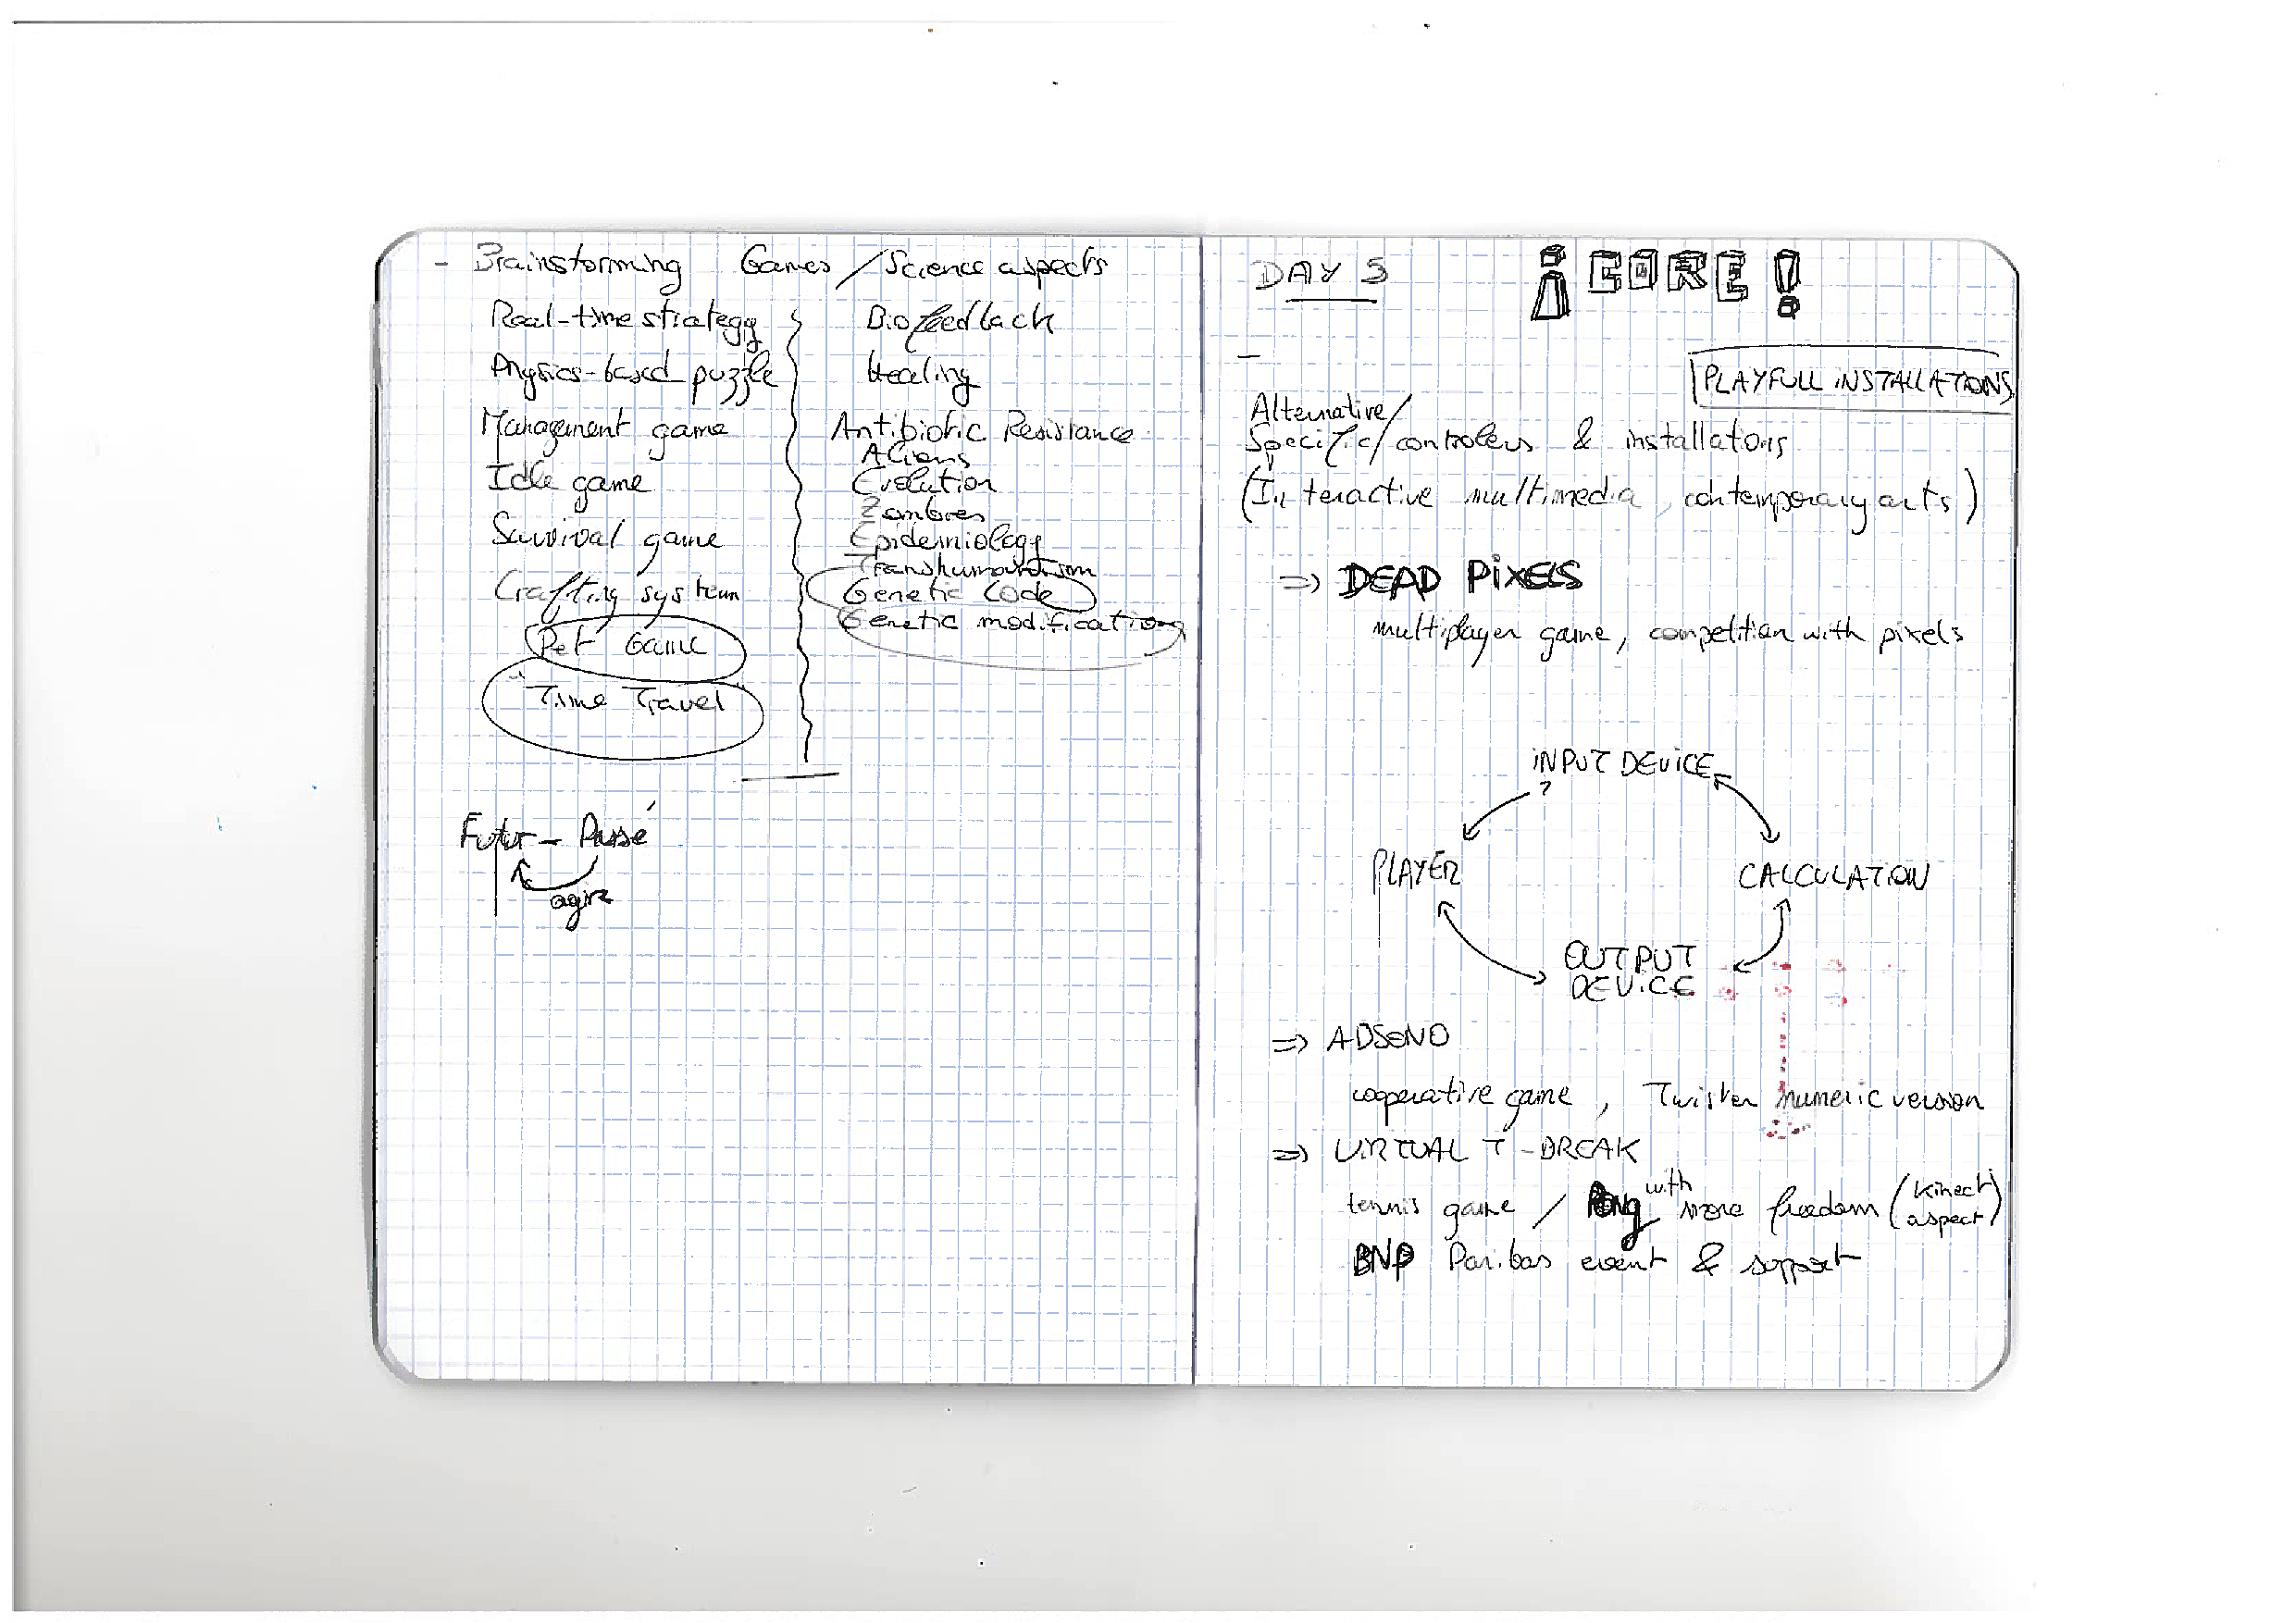 - Brainstorming Games / Science aspects
Real-time strategy
Physics-based puzzle
Management game
Idle game
Survival game
Crafting system
Pet Game
"Time Travel"
Biofeedback
Healing
Antibiotic Resistance
Aliens
Evolution
Zombies
Epidemiology
Transhumanism
Genetic Code
Genetic modifications
Futur - Passé
agir
DAY 5
¡CORE!
PLAYFULL INSTALLATIONS
-
Alternative/
Specific/controlers & installatons
(Interactive multimedia, contemporary arts)
=> DEAD PIXELS
multiplayer game, competition with pixels
INPUT DEVICE
PLAYER
CALCULATION
OUTPUT
DEVICE
=> ADSONO
cooperative game, Twister numeric version
=> VIRTUAL T-BREAK
tennis game / Pong with more freedom (kinect aspect)
BNP Paribas event & support